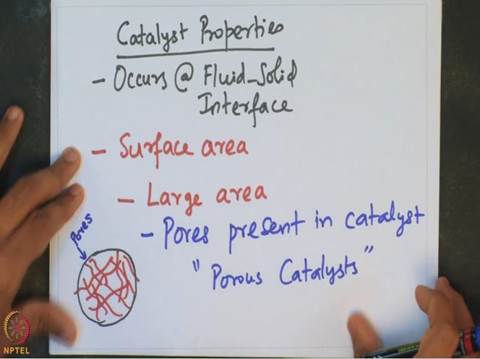 Catalyst Properties
- Occurs @ Fluid-Solid
Interface
- Surface area
- Large area
- Pores present in catalyst
"Porous Catalysts"
Pores
NPTEL